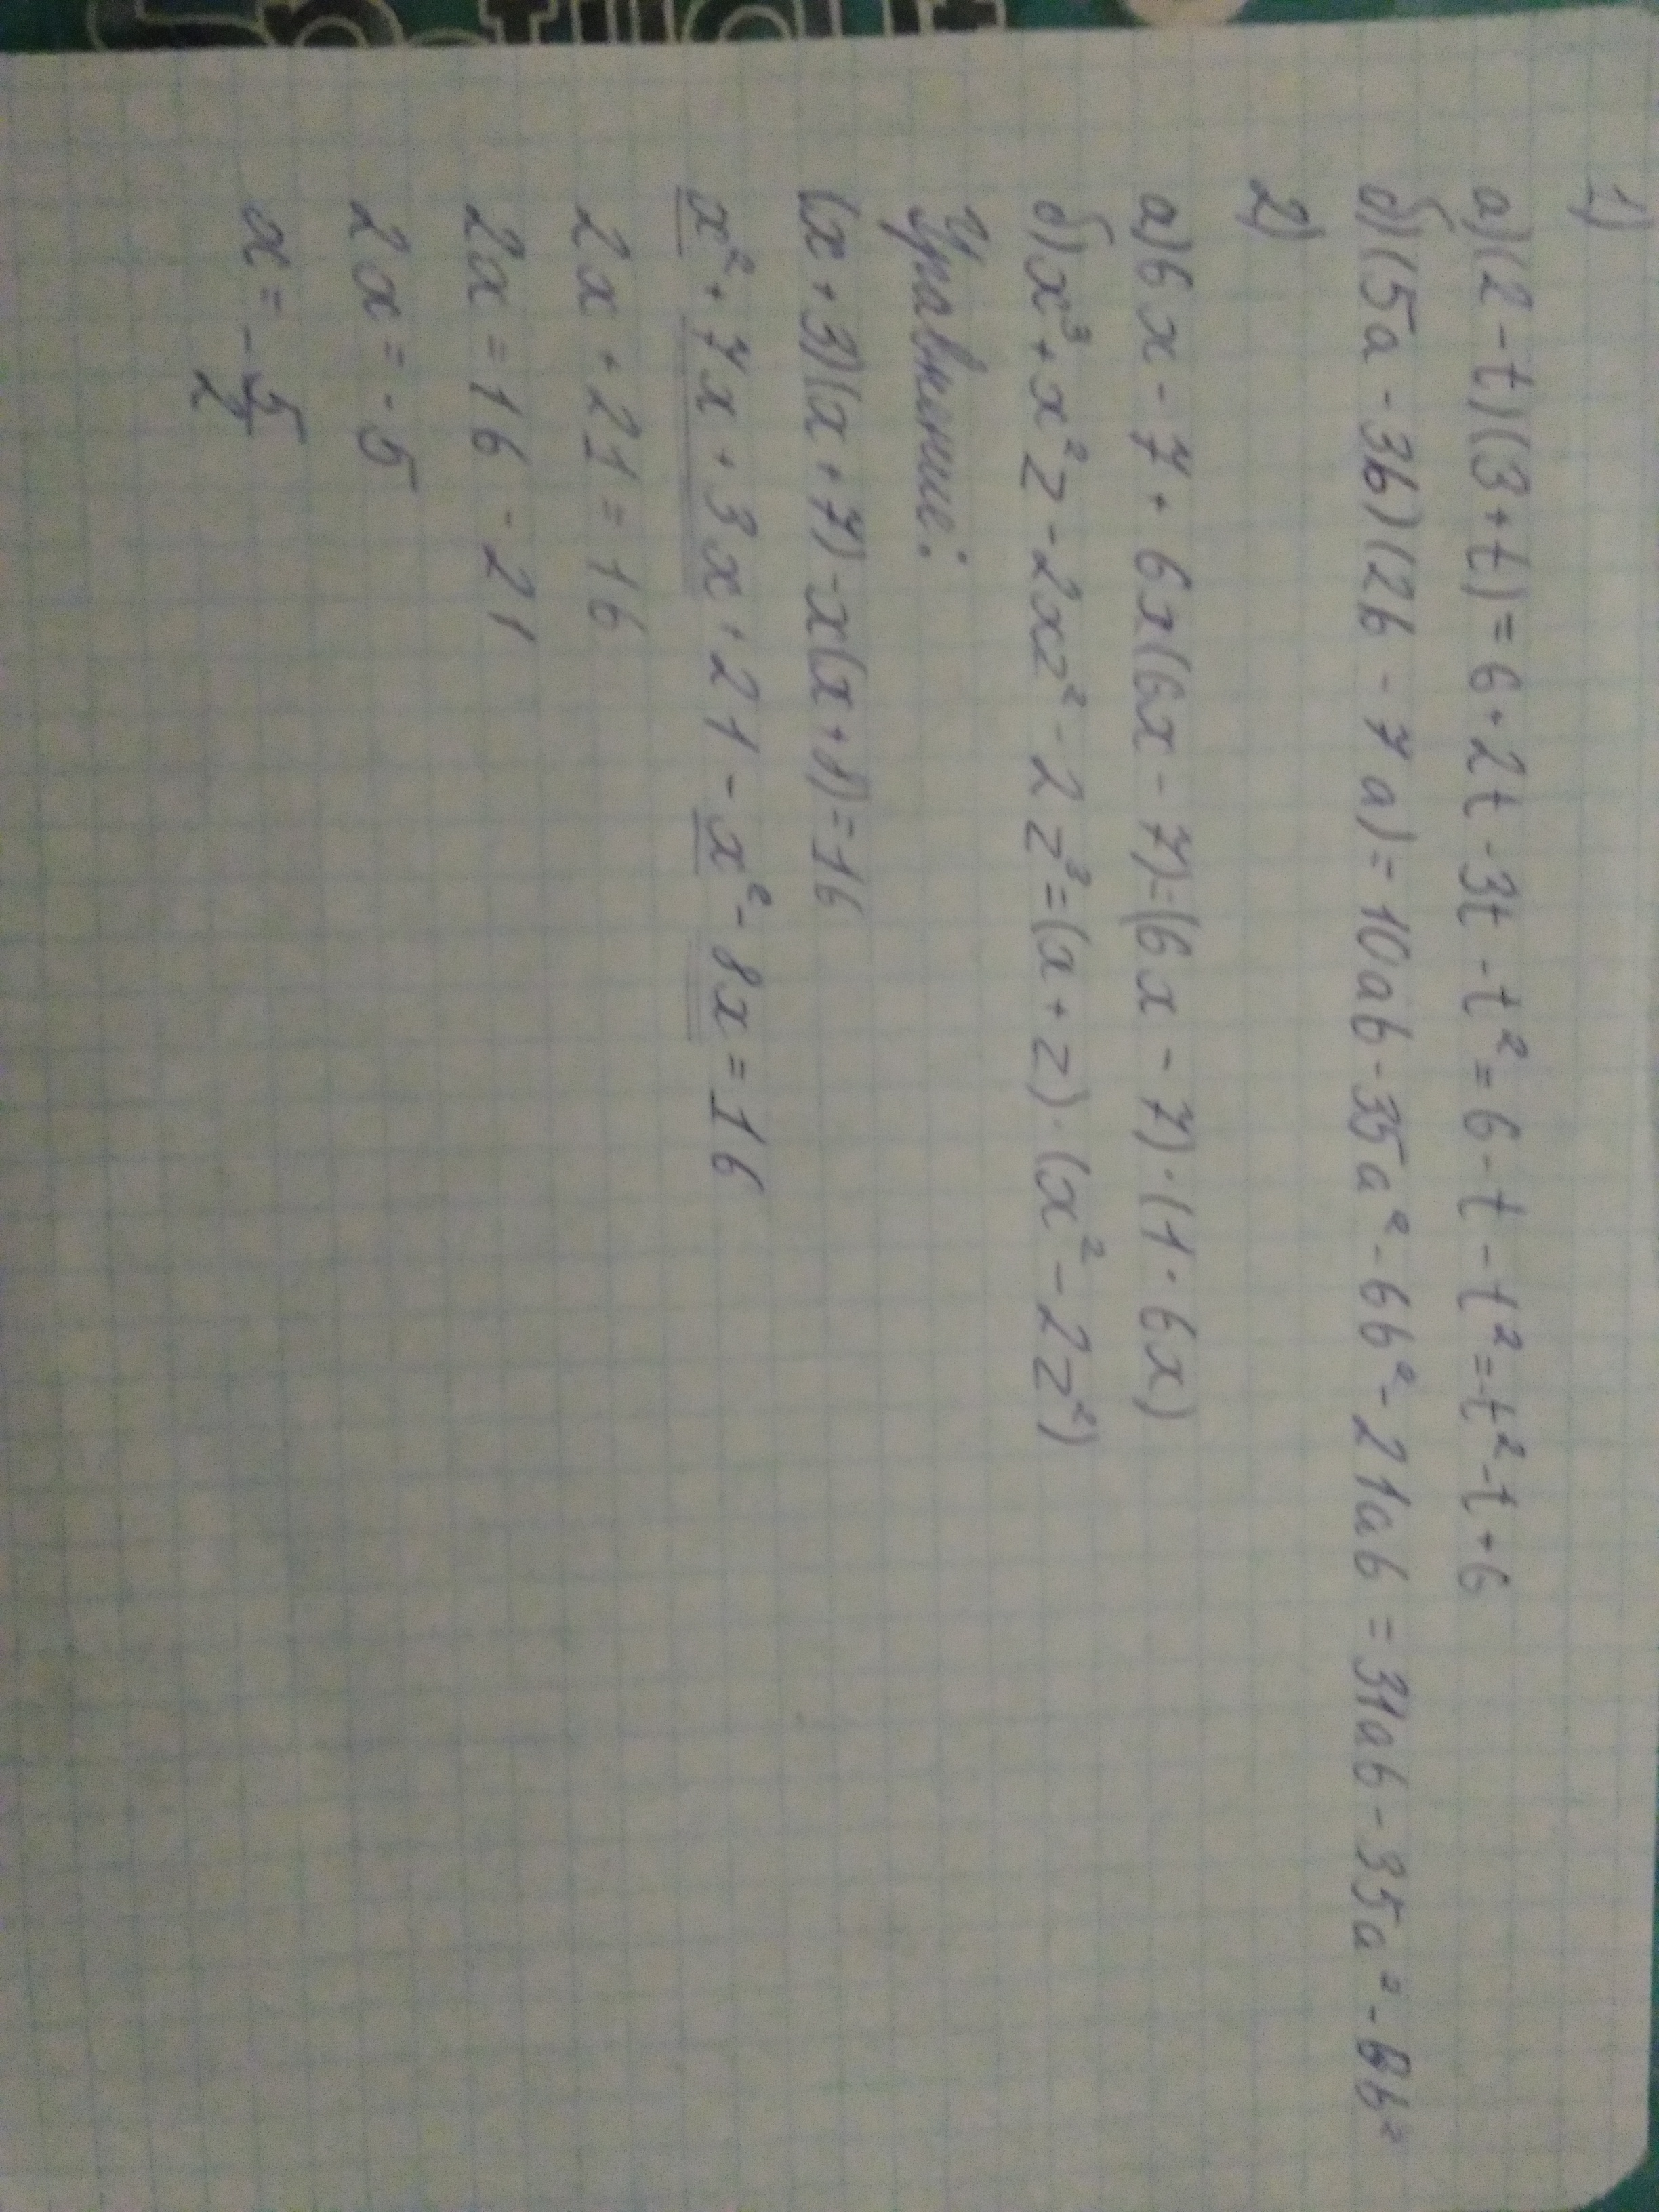 1)
а) (2 - t)(3 + t) = 6 + 2t - 3t - t² = 6 - t - t² = -t² - t + 6
б) (5a - 3b)(2b - 7a) = 10ab - 35a² - 6b² - 21ab = 31ab - 35a² - 6b²
2)
а) 6x - 7 + 6x(6x - 7) = (6x - 7) · (1 · 6x)
б) x³ + x²z - 2xz² - 2z³ = (x + z) · (x² - 2z²)
Уравнение:
(x + 3)(x + 7) - x(x + 8) = 16
x² + 7x + 3x + 21 - x² - 8x = 16
2x + 21 = 16
2x = 16 - 21
2x = -5
x = - 5/2